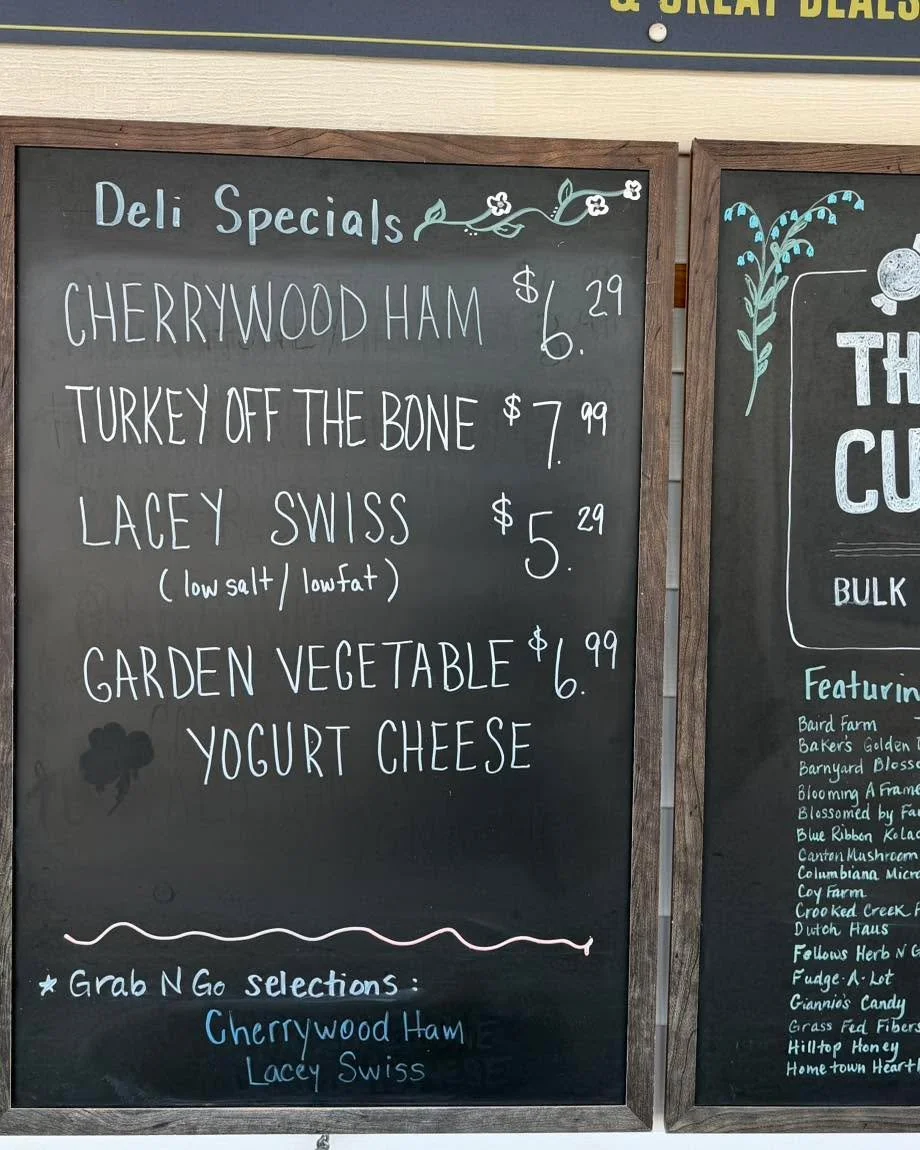 & GREAT DEALS
Deli Specials
CHERRYWOOD HAM $6.29
TURKEY OFF THE BONE $7.99
LACEY SWISS $5.29
(low salt/lowfat)
GARDEN VEGETABLE $6.99
YOGURT CHEESE
* Grab N Go selections:
Cherrywood Ham
Lacey Swiss
TH
CU
BULK
Featurin
Baird Farm
Baker's Golden
Barnyard Blosso
Blooming A Frame
Blossomed by Fa
Blue Ribbon Kolac
Canton Mushroom
Columbiana Micro
Coy Farm
Crooked Creek F
Dutch Haus
Fellows Herb N G
Fudge-A-Lot
Giannio's Candy
Grass Fed Fibers
Hilltop Honey
Hometown Hearth